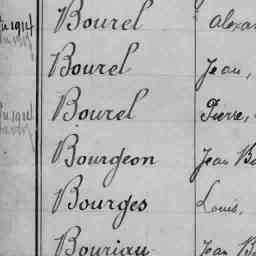 Bourel Alexan
Bourel Jean,
Bourel Pierre,
Bourgeon Jean Ba
Bourges Louis,
Bouriau Jean Ba